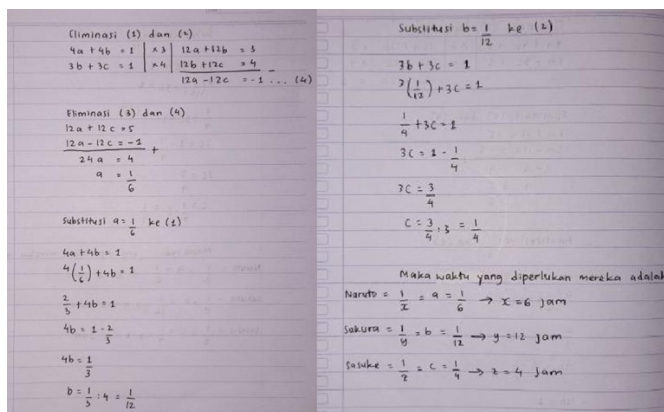 Eliminasi (1) dan (2)
4a + 4b = 1 | x3 | 12a + 12b = 3
3b + 3c = 1 | x4 | 12b + 12c = 4 -
12a - 12c = -1 ... (4)
Eliminasi (3) dan (4)
12a + 12c = 5
12a - 12c = -1 +
24a = 4
a = 1/6
Substitusi a = 1/6 ke (1)
4a + 4b = 1
4(1/6) + 4b = 1
2/3 + 4b = 1
4b = 1 - 2/3
4b = 1/3
b = 1/3 : 4 = 1/12
Substitusi b = 1/12 ke (2)
3b + 3c = 1
3(1/12) + 3c = 1
1/4 + 3c = 1
3c = 1 - 1/4
3c = 3/4
c = 3/4 : 3 = 1/4
Maka waktu yang diperlukan mereka adalah
Naruto = 1/x = a = 1/6 → x = 6 jam
Sakura = 1/y = b = 1/12 → y = 12 jam
Sasuke = 1/z = c = 1/4 → z = 4 jam